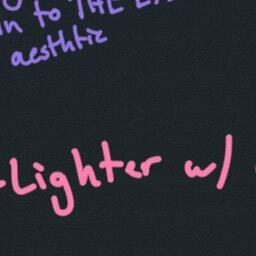 in to THE
aesthtic
-Lighter w/